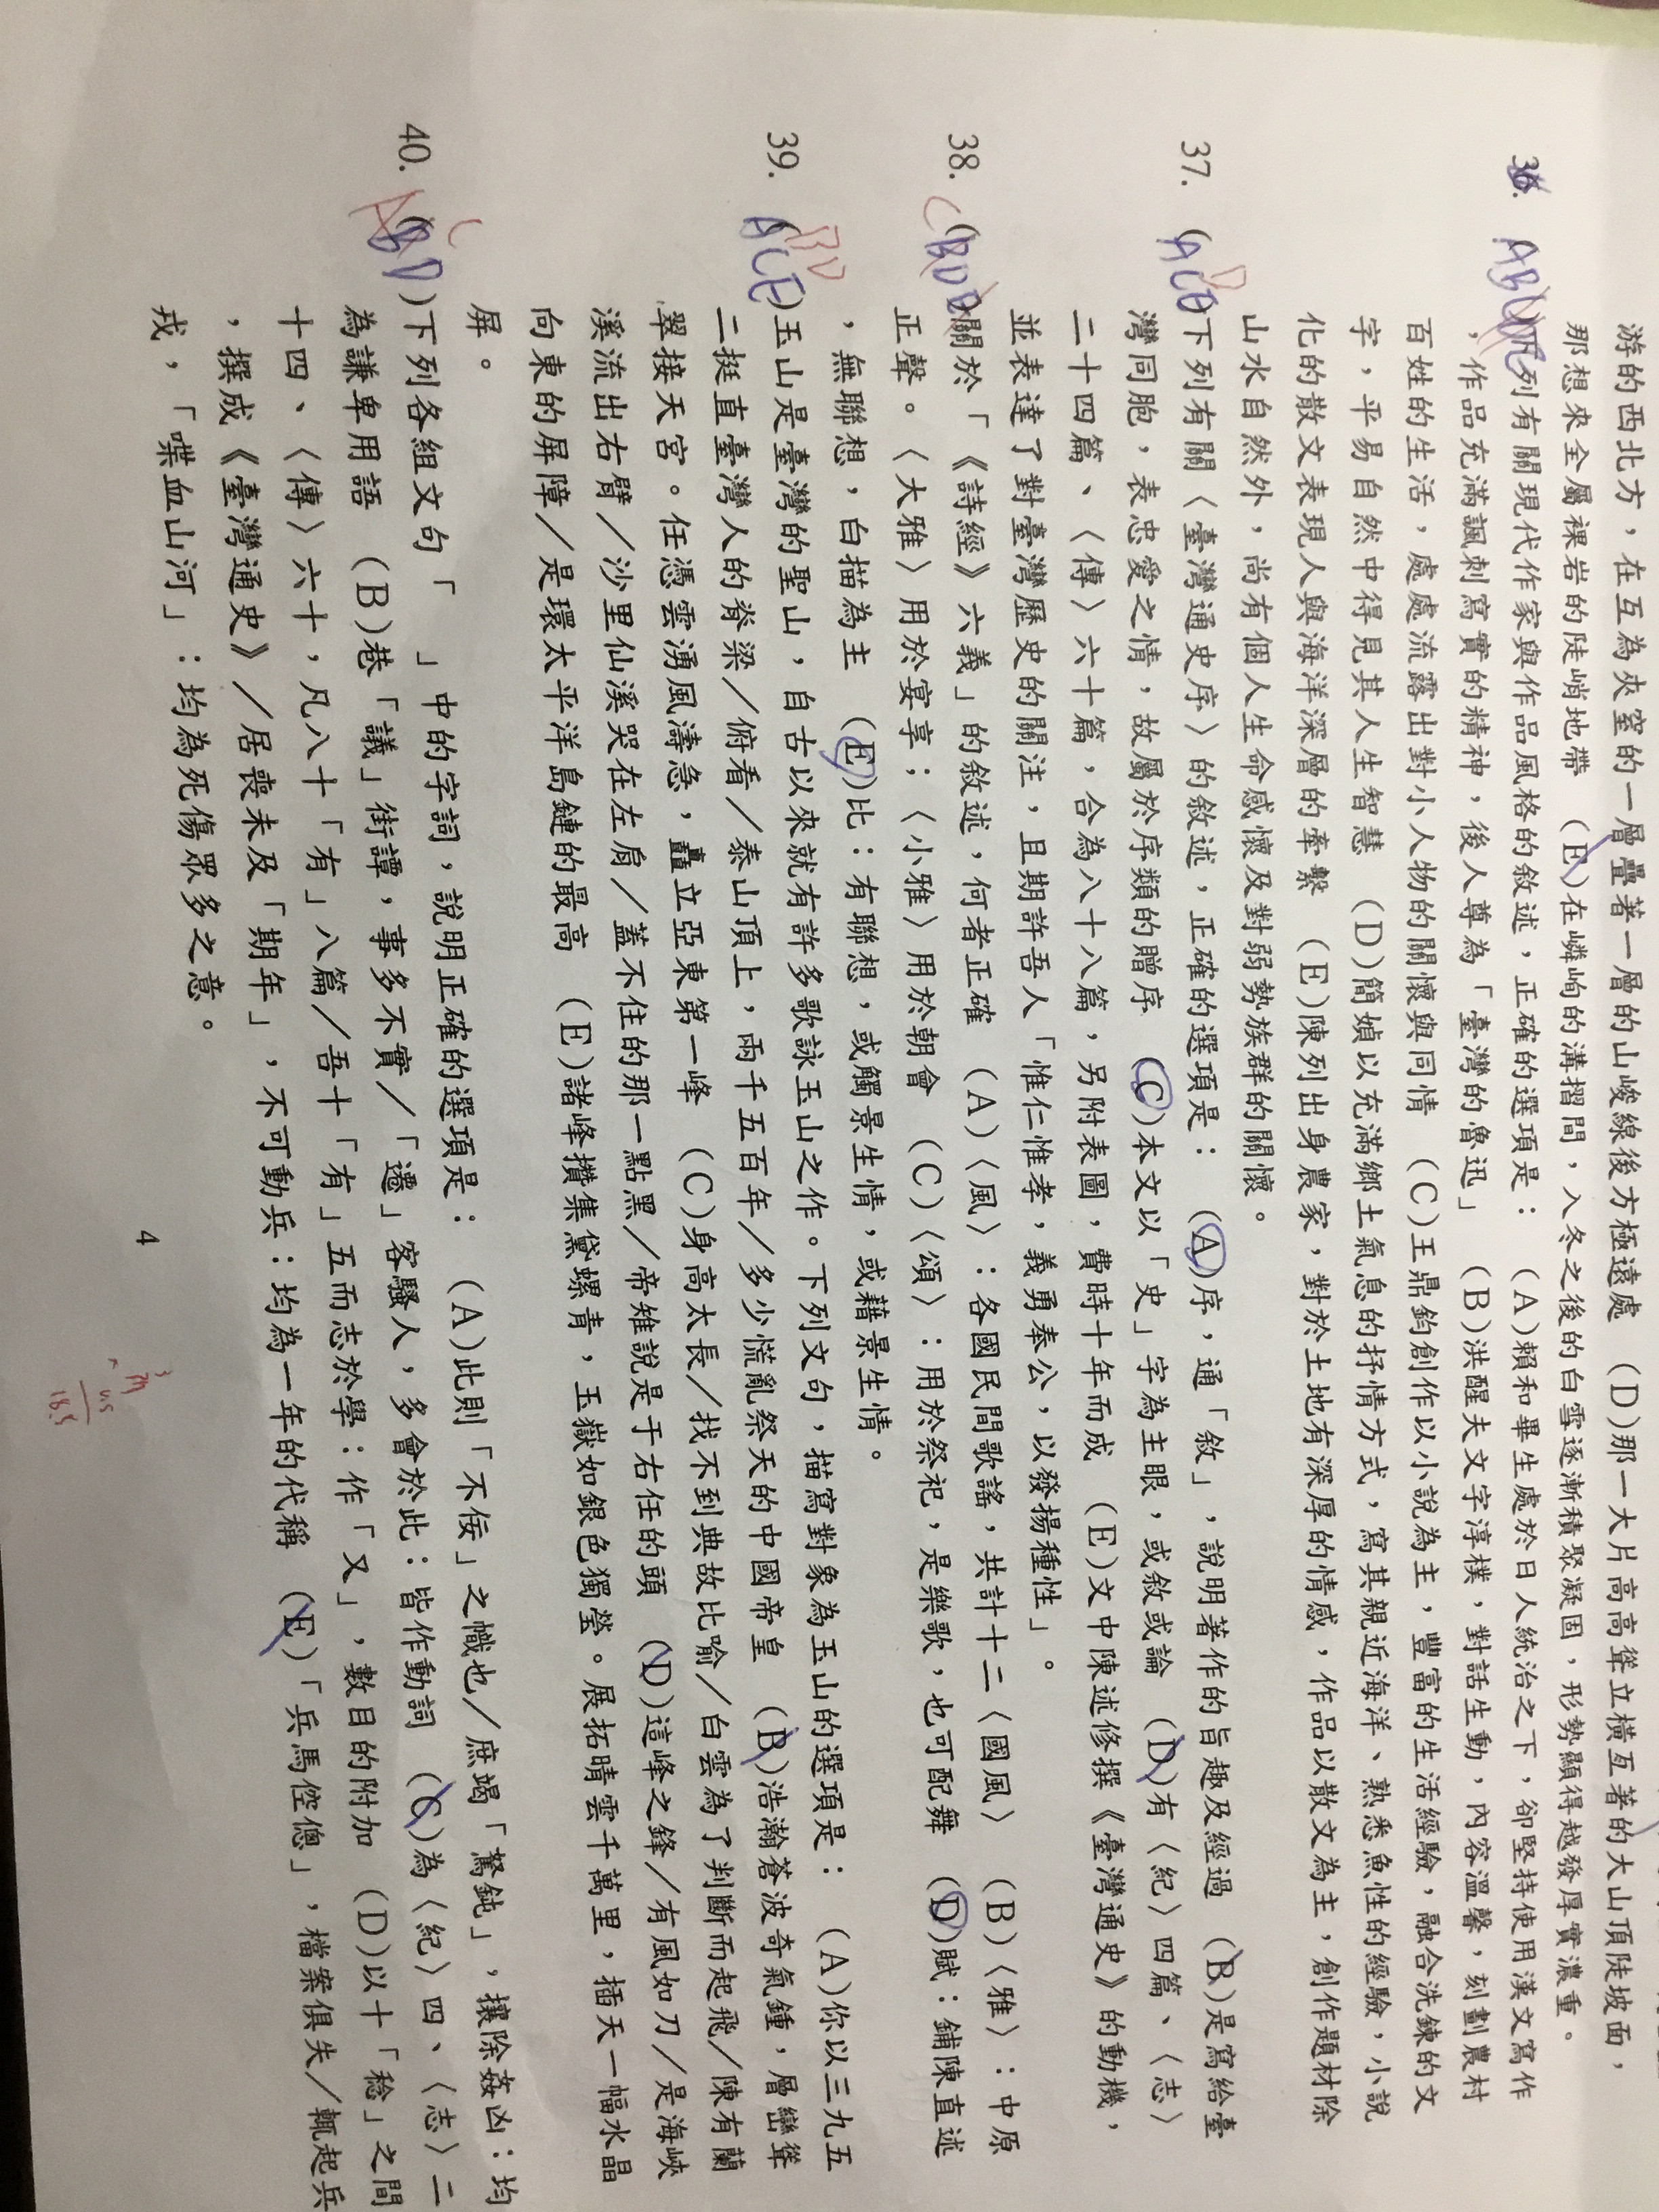 游的西北方,在互為夾窒的一層疊著一層的山峻線後方極遠處 (D)那一大片高高聳立橫亙著的大山頂陡坡面,
那想來全屬裸岩的陡峭地帶 (E)在嶙峋的溝摺間,入冬之後的白雪逐漸積聚凝固,形勢顯得越發厚實濃重。
36. (AB)下列有關現代作家與作品風格的敘述,正確的選項是: (A)賴和畢生處於日人統治之下,卻堅持使用漢文寫作
,作品充滿諷刺寫實的精神,後人尊為「臺灣的魯迅」 (B)洪醒夫文字淳樸,對話生動,內容溫馨,刻劃農村
百姓的生活,處處流露出對小人物的關懷與同情 (C)王鼎鈞創作以小說為主,豐富的生活經驗,融合洗鍊的文
字,平易自然中得見其人生智慧 (D)簡媜以充滿鄉土氣息的抒情方式,寫其親近海洋、熟悉魚性的經驗,小說
化的散文表現人與海洋深層的牽繫 (E)陳列出身農家,對於土地有深厚的情感,作品以散文為主,創作題材除
山水自然外,尚有個人生命感懷及對弱勢族群的關懷。
37. (AC D)下列有關〈臺灣通史序〉的敘述,正確的選項是: (A)序,通「敘」,說明著作的旨趣及經過 (B)是寫給臺
灣同胞,表忠愛之情,故屬於序類的贈序 (C)本文以「史」字為主眼,或敘或論 (D)有〈紀〉四篇、〈志〉
二十四篇、〈傳〉六十篇,合為八十八篇,另附表圖,費時十年而成 (E)文中陳述修撰《臺灣通史》的動機,
並表達了對臺灣歷史的關注,且期許吾人「惟仁惟孝,義勇奉公,以發揚種性」。
38. (C BD)關於「《詩經》六義」的敘述,何者正確 (A)〈風〉:各國民間歌謠,共計十二〈國風〉 (B)〈雅〉:中原
正聲。〈大雅〉用於宴享;〈小雅〉用於朝會 (C)〈頌〉:用於祭祀,是樂歌,也可配舞 (D)賦:鋪陳直述
,無聯想,白描為主 (E)比:有聯想,或觸景生情,或藉景生情。
39. (ACE BD)玉山是臺灣的聖山,自古以來就有許多歌詠玉山之作。下列文句,描寫對象為玉山的選項是: (A)你以三九五
二挺直臺灣人的脊梁/俯看/泰山頂上,兩千五百年/多少慌亂祭天的中國帝皇 (B)浩瀚蒼波奇氣鍾,層巒聳
翠接天宮。任憑雲湧風濤急,矗立亞東第一峰 (C)身高太長/找不到典故比喻/白雲為了判斷而起飛/陳有蘭
溪流出右臂/沙里仙溪哭在左肩/蓋不住的那一點黑/帝雉說是于右任的頭 (D)這峰之鋒/有風如刀/是海峽
向東的屏障/是環太平洋島鏈的最高 (E)諸峰攢集黛螺青,玉嶽如銀色獨瑩。展拓晴雲千萬里,插天一幅水晶
屏。
40. (A BD C)下列各組文句「 」中的字詞,說明正確的選項是: (A)此則「不佞」之幟也/庶竭「駑鈍」,攘除姦凶:均
為謙卑用語 (B)巷「議」街譚,事多不實/「遷」客騷人,多會於此:皆作動詞 (C)為〈紀〉四、〈志〉二
十四、〈傳〉六十,凡八十「有」八篇/吾十「有」五而志於學:作「又」,數目的附加 (D)以十「稔」之間
,撰成《臺灣通史》/居喪未及「期年」,不可動兵:均為一年的代稱 (E)「兵馬倥傯」,檔案俱失/輒起兵
戎,「喋血山河」:均為死傷眾多之意。
4
18.5